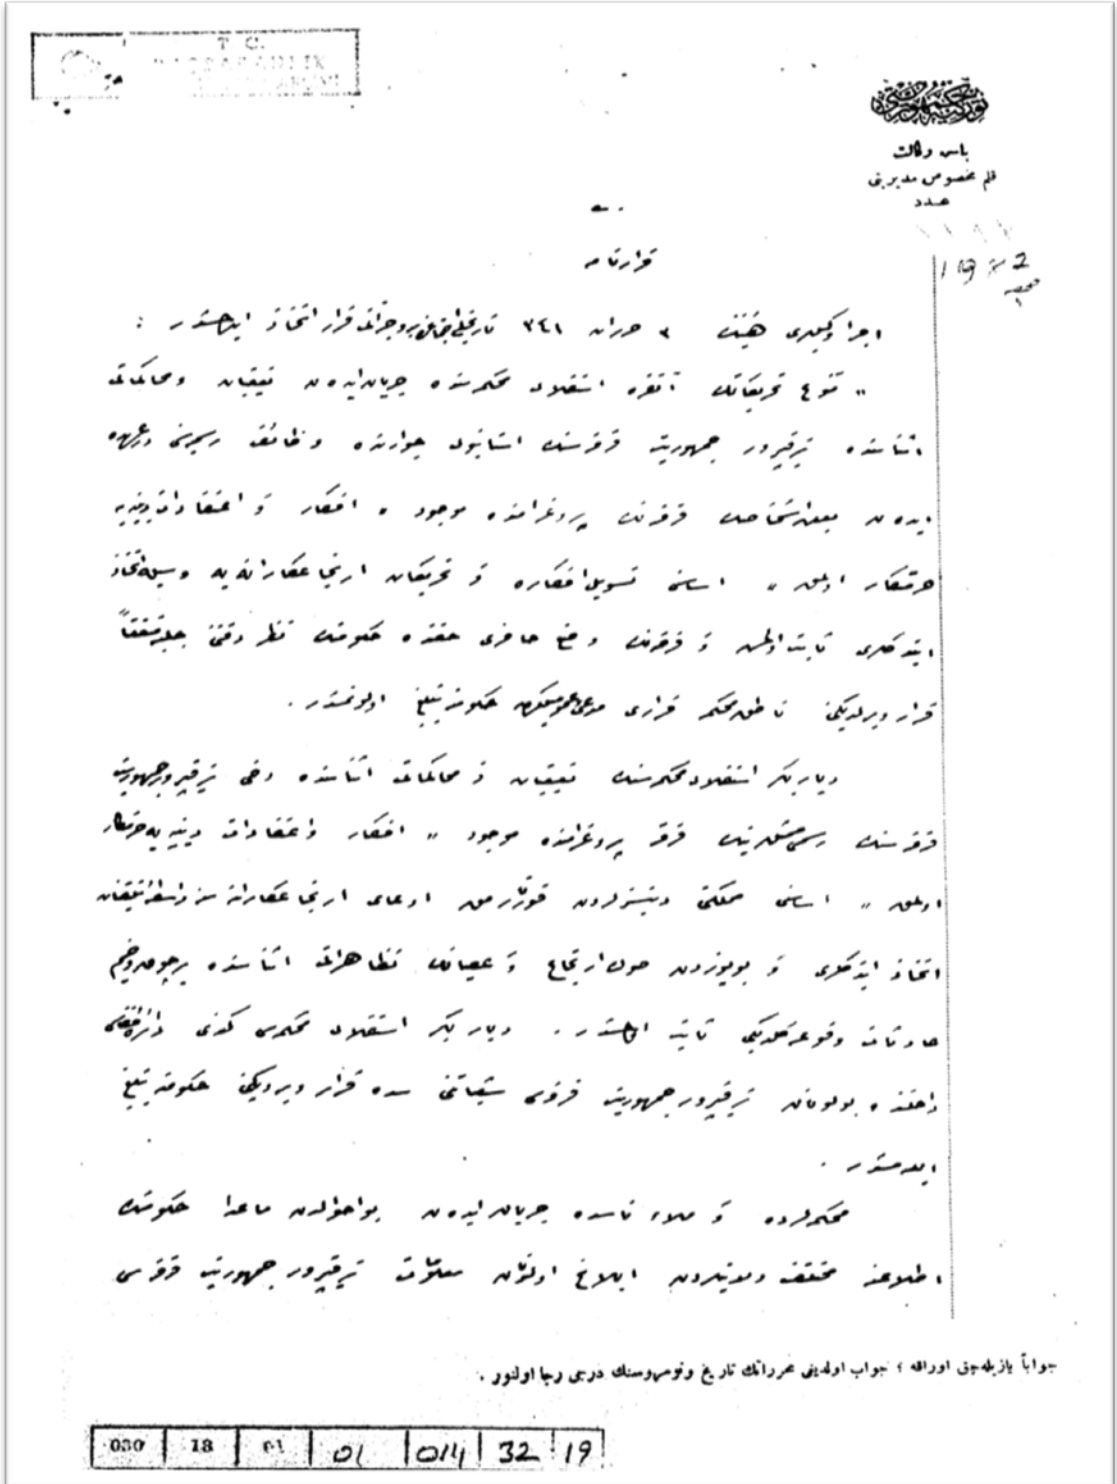 T. C.
BAŞBAKANLIK
تورکیه جمهوریتی
باش وکالت
قلم مخصوص مدیریتی
عدد
1982
صحیفه
١
قرارنامه
اجرا وکیلری هیئتنك ٣ حزیران ٣٤١ تاریخلی اجتماعنده بروجه آتی قرار اتخاذ ایدلمشدر :
« متنوع تحریکاتك آنقره استقلال محکمه‌سنده جریان ایدن تعقیبات و محاکماتی
اثناسنده ترقیپرور جمهوریت فرقه‌سنك استانبول جوارنده وظائف رسمیه‌سنی درعهده
ایدن بعض اشخاصك فرقه‌نك پروغرامنده موجود « افکار و اعتقادات دینیه‌یه
حرمتکار اولمق » اساسنی تسویل افکاره و تحریکات ارتجاعکارانه‌یه وسیله اتخاذ
ایتدکلری ثابت اولمش و فرقه‌نك وضع حاضری حقنده حکومتك نظر دقتنی جلبه متفقاً
قرار ویرلدیکنی ناطق محکمه قراری مدعی عمومیلکدن حکومته تبلیغ اولونمشدر .
دیاربکر استقلال محکمه‌سنك تعقیبات و محاکماتی اثناسنده دخی ترقیپرور جمهوریت
فرقه‌سنك رسمی ممثللرینك فرقه پروغرامنده موجود « افکار و اعتقادات دینیه‌یه حرمتکار
اولمق » اساسنی مملکتی دینسزلردن قورتارمق ادعای ارتجاعکارانه‌سنه واسطهٔ تلقینات
اتخاذ ایتدکلری و بو یوزدن صوك ارتجاع و عصیانك تظاهراتی اثناسنده برچوق وخیم
حادثات وقوعه کلدیکی ثابت اولمشدر . دیاربکر استقلال محکمه‌سی کندی دائرهٔ قضاسی
داخلنده بولونان ترقیپرور جمهوریت فرقه‌سی شعباتنی سده قرار ویردیکنی حکومته تبلیغ
ایله‌مشدر .
محکمه‌لرده و ملاء ناسده جریان ایدن بو احوالدن ماعدا حکومتك
اطلاعنه مختلف ولایتلردن ابلاغ اولونان معلومات ترقیپرور جمهوریت فرقه‌سی
جواباً یازیله‌جق اوراقه ؛ جواب اولدیغی محرراتك تاریخ و نومروسنك درجی رجا اولنور .
030 18 01 01 014 32 19